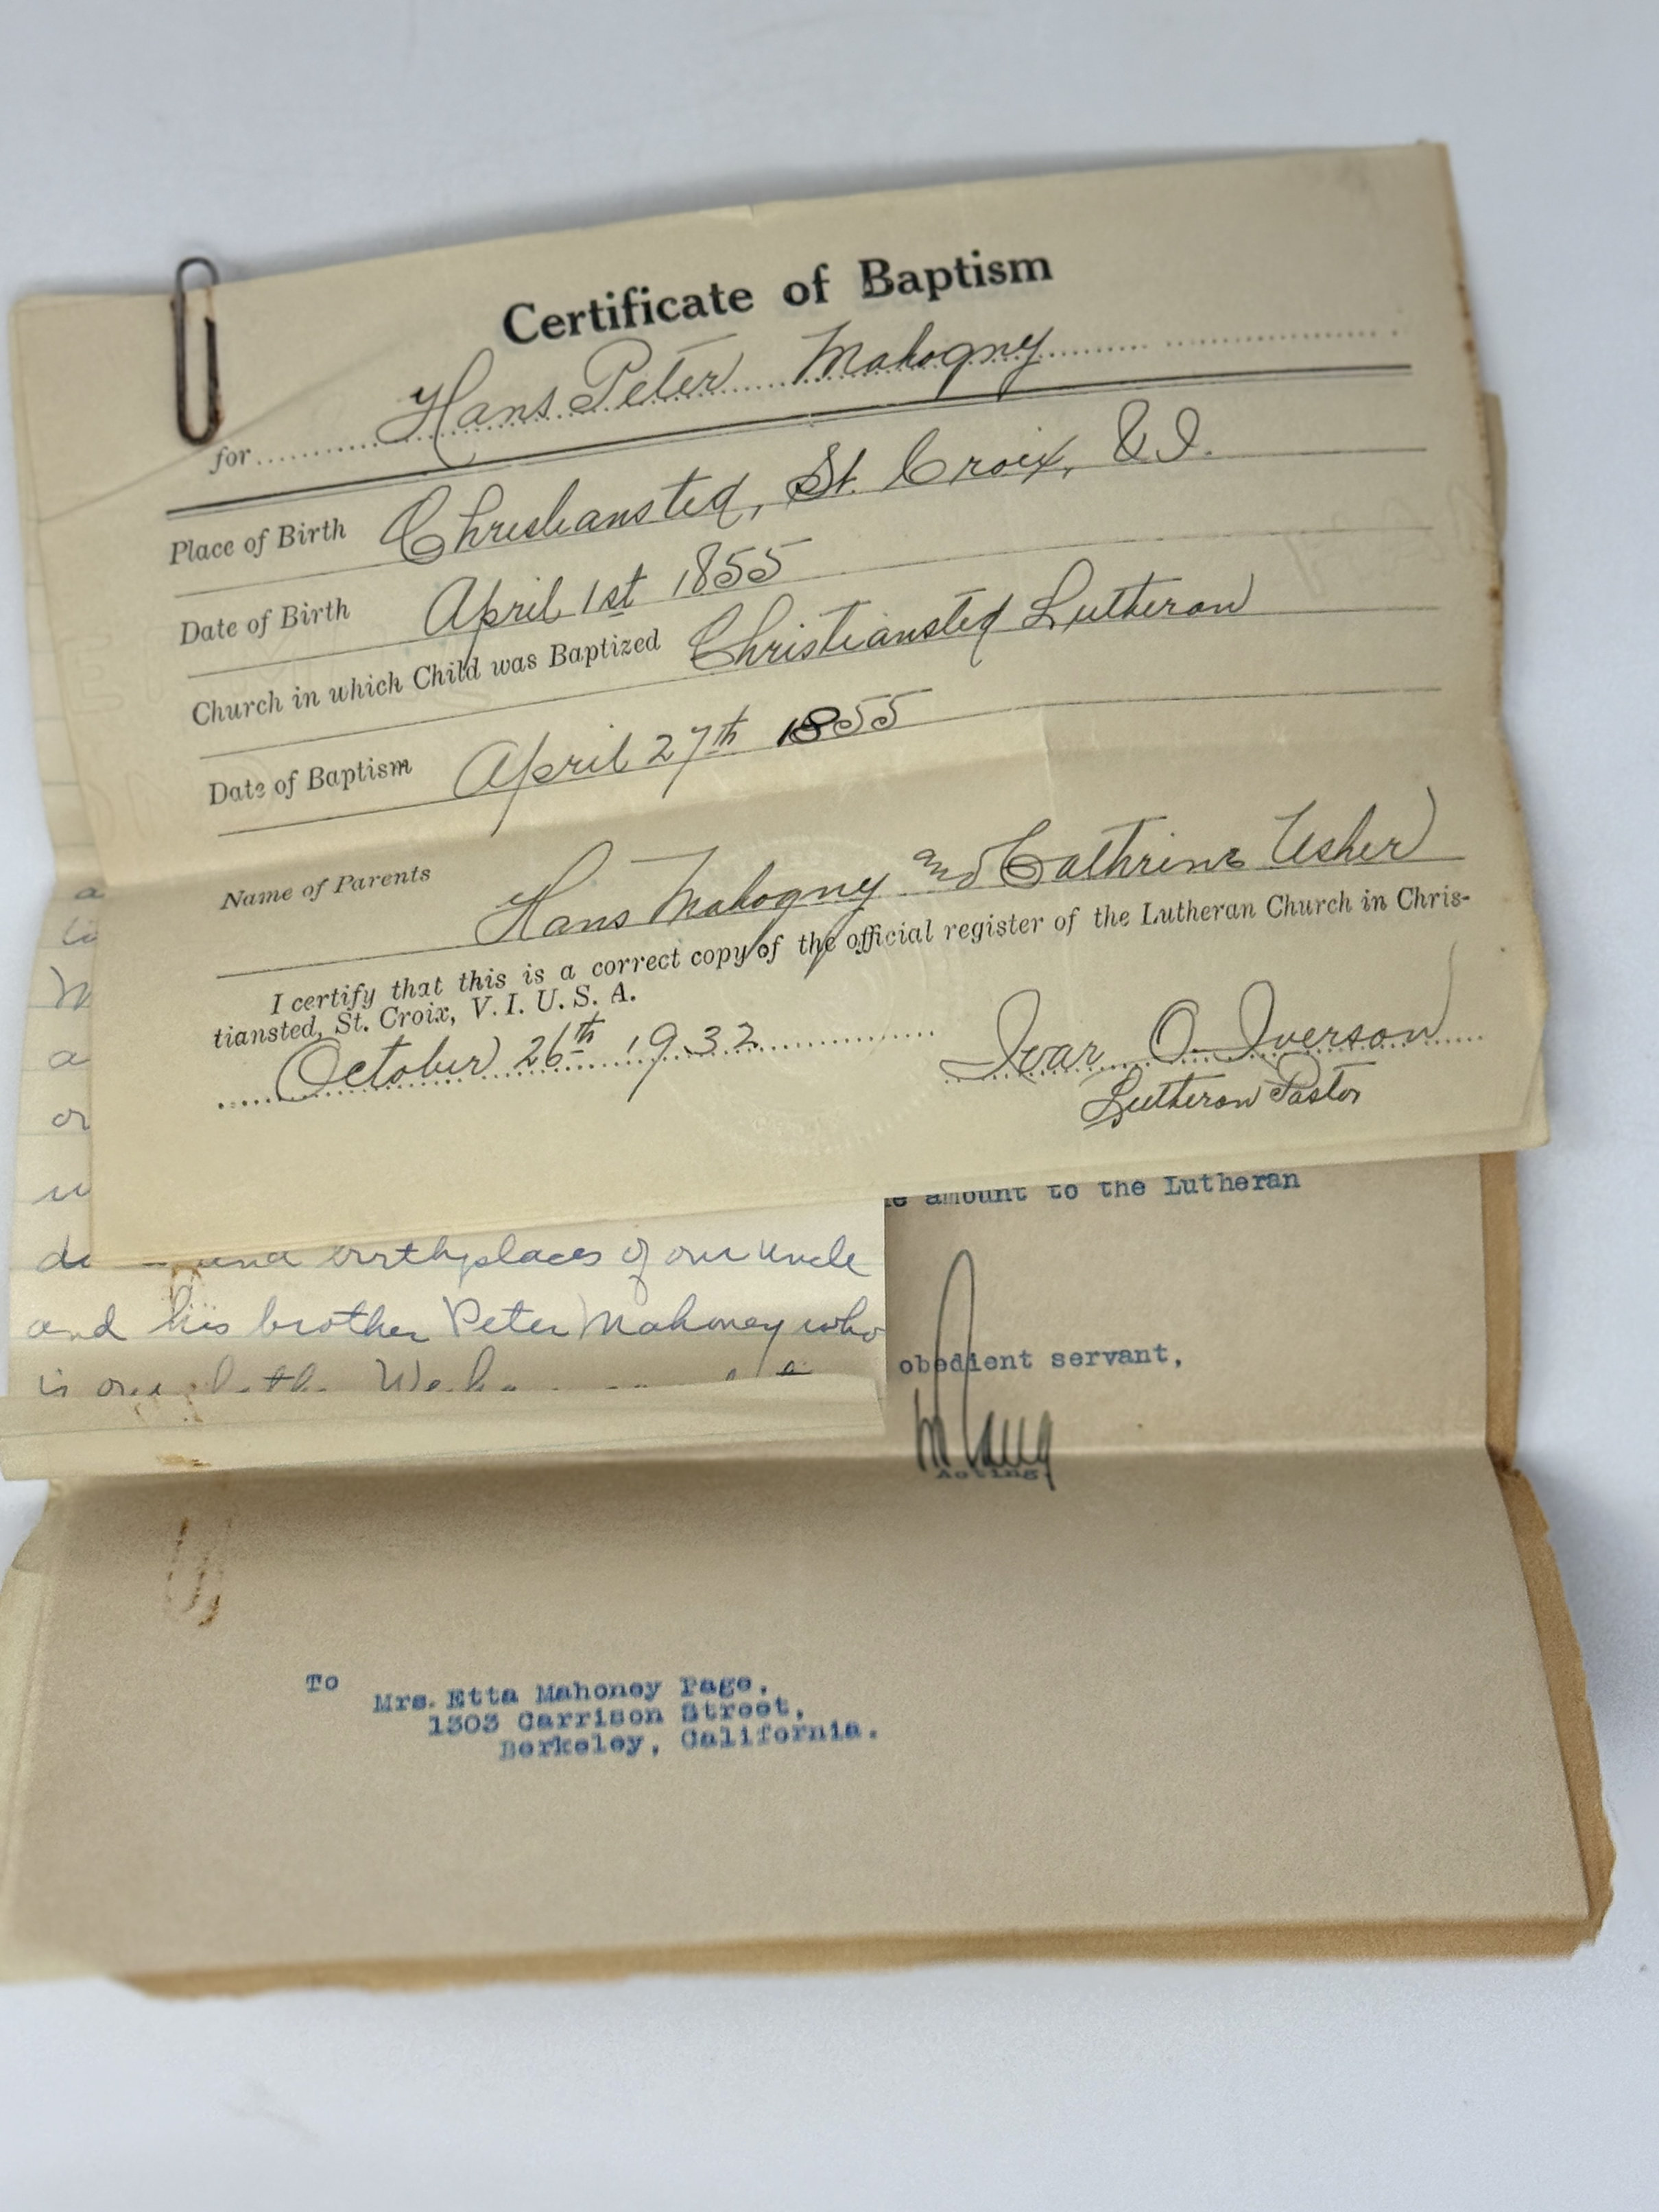 Certificate of Baptism
for Hans Peter Mahogny
Place of Birth Christiansted, St. Croix, V.I.
Date of Birth April 1st 1855
Church in which Child was Baptized Christiansted Lutheran
Date of Baptism April 27th 1855
Name of Parents Hans Mahogny and Cathrine Usher
I certify that this is a correct copy of the official register of the Lutheran Church in Chris-
tiansted, St. Croix, V. I. U. S. A.
October 26th 1932 Ivar O. Iverson
Lutheran Pastor
a
M
a
or
amount to the Lutheran
and birthplaces of our uncle
and his brother Peter Mahoney who
is our
obedient servant,
Acting
To
Mrs. Etta Mahoney Page,
1303 Carrison Street,
Berkeley, California.